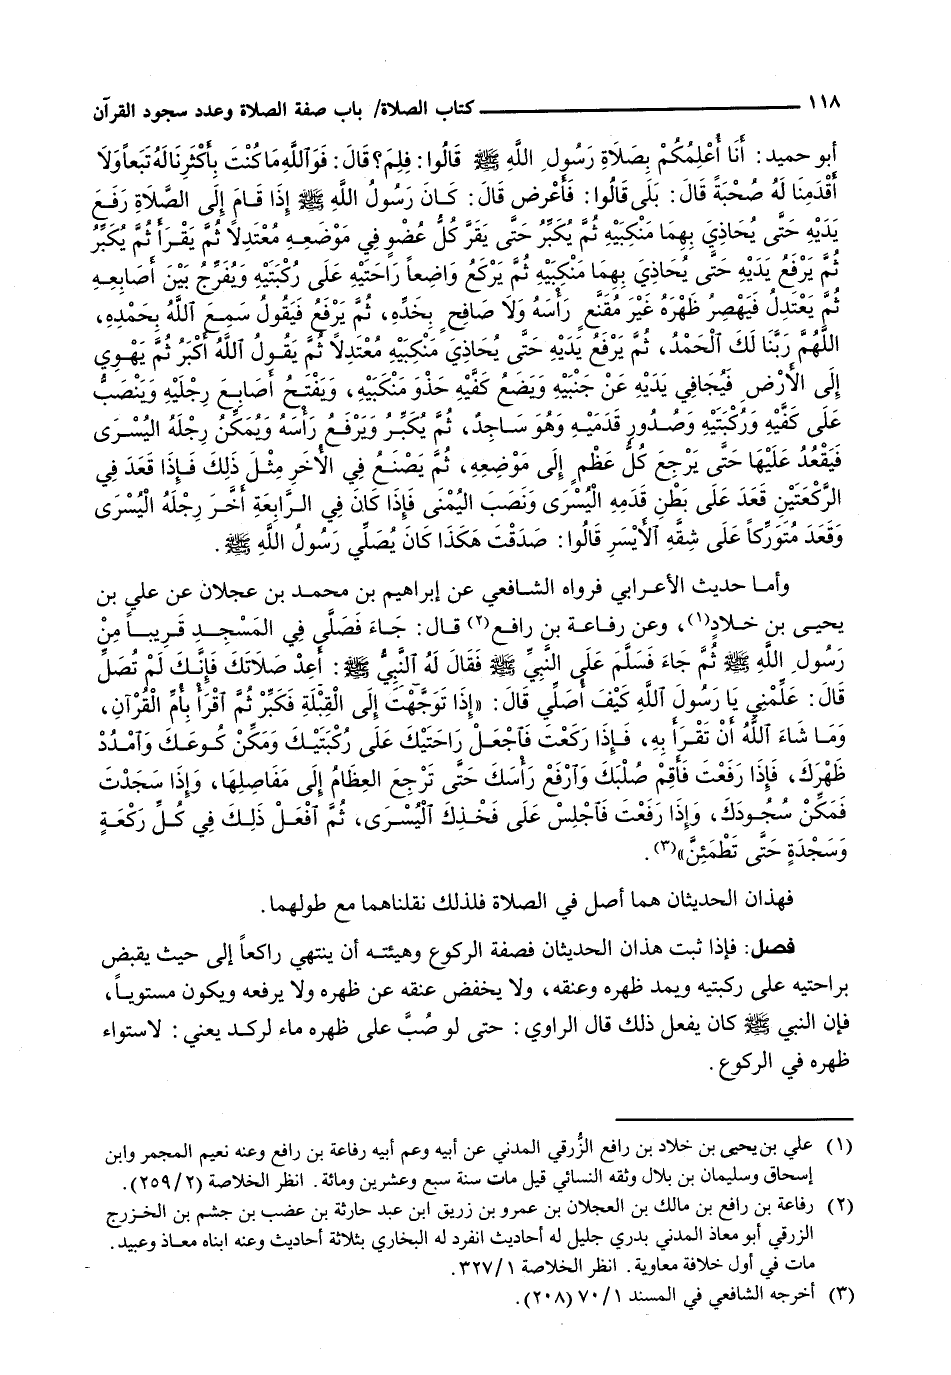 ١١٨ ــــــــــــــــــــــــ كتاب الصلاة/ باب صفة الصلاة وعدد سجود القرآن
أبو حميد: أَنَا أُعْلِمُكُمْ بِصَلَاةِ رَسُولِ اللَّهِ ﷺ قَالُوا: فَلِمَ؟ قَالَ: فَوَاللَّهِ مَا كُنْتَ بِأَكْثَرِنَا لَهُ تَبَعاً وَلَا
أَقْدَمِنَا لَهُ صُحْبَةً قَالَ: بَلَى قَالُوا: فَأَعْرِض قَالَ: كَانَ رَسُولُ اللَّهِ ﷺ إِذَا قَامَ إِلَى الصَّلَاةِ رَفَعَ
يَدَيْهِ حَتَّى يُحَاذِيَ بِهِمَا مَنْكِبَيْهِ ثُمَّ يُكَبِّرُ حَتَّى يَقَرَّ كُلُّ عُضْوٍ فِي مَوْضِعِهِ مُعْتَدِلاً ثُمَّ يَقْرَأُ ثُمَّ يُكَبِّرُ
ثُمَّ يَرْفَعُ يَدَيْهِ حَتَّى يُحَاذِيَ بِهِمَا مَنْكِبَيْهِ ثُمَّ يَرْكَعُ وَاضِعاً رَاحَتَيْهِ عَلَى رُكْبَتَيْهِ وَيُفَرِّجُ بَيْنَ أَصَابِعِهِ
ثُمَّ يَعْتَدِلُ فَيَهْصِرُ ظَهْرَهُ غَيْرَ مُقَنَّعٍ رَأْسَهُ وَلَا صَافِحٍ بِخَدِّهِ، ثُمَّ يَرْفَعُ فَيَقُولُ سَمِعَ اللَّهُ بِحَمْدِهِ،
اللَّهُمَّ رَبَّنَا لَكَ الْحَمْدُ، ثُمَّ يَرْفَعُ يَدَيْهِ حَتَّى يُحَاذِيَ مَنْكِبَيْهِ مُعْتَدِلاً ثُمَّ يَقُولُ اللَّهُ أَكْبَرُ ثُمَّ يَهْوِي
إِلَى الْأَرْضِ فَيُجَافِي يَدَيْهِ عَنْ جَنْبَيْهِ وَيَضَعُ كَفَّيْهِ حَذْوَ مَنْكِبَيْهِ، وَيَفْتَحُ أَصَابِعَ رِجْلَيْهِ وَيَنْصَبُّ
عَلَى كَفَّيْهِ وَرُكْبَتَيْهِ وَصُدُورِ قَدَمَيْهِ وَهُوَ سَاجِدٌ، ثُمَّ يُكَبِّرُ وَيَرْفَعُ رَأْسَهُ وَيُمَكِّنُ رِجْلَهُ الْيُسْرَى
فَيَقْعُدُ عَلَيْهَا حَتَّى يَرْجِعَ كُلُّ عَظْمٍ إِلَى مَوْضِعِهِ، ثُمَّ يَصْنَعُ فِي الْأَخَرِ مِثْلَ ذَلِكَ فَإِذَا قَعَدَ فِي
الرَّكْعَتَيْنِ قَعَدَ عَلَى بَطْنِ قَدَمِهِ الْيُسْرَى وَنَصَبَ الْيُمْنَى فَإِذَا كَانَ فِي الرَّابِعَةِ أَخَّرَ رِجْلَهُ الْيُسْرَى
وَقَعَدَ مُتَوَرِّكاً عَلَى شِقِّهِ الْأَيْسَرِ قَالُوا: صَدَقْتَ هَكَذَا كَانَ يُصَلِّي رَسُولُ اللَّهِ ﷺ.
وأما حديث الأعرابي فرواه الشافعي عن إبراهيم بن محمد بن عجلان عن علي بن
يحيى بن خلادٍ(١)، وعن رفاعة بن رافع(٢) قال: جَاءَ فَصَلَّى فِي الْمَسْجِدِ قَرِيباً مِنْ
رَسُولِ اللَّهِ ﷺ ثُمَّ جَاءَ فَسَلَّمَ عَلَى النَّبِيِّ ﷺ فَقَالَ لَهُ النَّبِيُّ ﷺ: أَعِدْ صَلَاتَكَ فَإِنَّكَ لَمْ تُصَلِّ
قَالَ: عَلِّمْنِي يَا رَسُولَ اللَّهِ كَيْفَ أُصَلِّي قَالَ: «إِذَا تَوَجَّهْتَ إِلَى الْقِبْلَةِ فَكَبِّرْ ثُمَّ اقْرَأْ بِأُمِّ الْقُرْآنِ،
وَمَا شَاءَ اللَّهُ أَنْ تَقْرَأَ بِهِ، فَإِذَا رَكَعْتَ فَاجْعَلْ رَاحَتَيْكَ عَلَى رُكْبَتَيْكَ وَمَكِّنْ كُوعَكَ وَامْدُدْ
ظَهْرَكَ، فَإِذَا رَفَعْتَ فَأَقِمْ صُلْبَكَ وَارْفَعْ رَأْسَكَ حَتَّى تَرْجِعَ الْعِظَامُ إِلَى مَفَاصِلِهَا، وَإِذَا سَجَدْتَ
فَمَكِّنْ سُجُودَكَ، وَإِذَا رَفَعْتَ فَاجْلِسْ عَلَى فَخْذِكَ الْيُسْرَى، ثُمَّ افْعَلْ ذَلِكَ فِي كُلِّ رَكْعَةٍ
وَسَجْدَةٍ حَتَّى تَطْمَئِنَّ»(٣).
فهذان الحديثان هما أصل في الصلاة فلذلك نقلناهما مع طولهما.
فصل: فإذا ثبت هذان الحديثان فصفة الركوع وهيئته أن ينتهي راكعاً إلى حيث يقبض
براحتيه على ركبتيه ويمد ظهره وعنقه، ولا يخفض عنقه عن ظهره ولا يرفعه ويكون مستوياً،
فإن النبي ﷺ كان يفعل ذلك قال الراوي: حتى لو صُبَّ على ظهره ماء لركد يعني: لاستواء
ظهره في الركوع.
(١) علي بن يحيى بن خلاد بن رافع الزُّرقي المدني عن أبيه وعم أبيه رفاعة بن رافع وعنه نعيم المجمر وابن
إسحاق وسليمان بن بلال وثقه النسائي قيل مات سنة سبع وعشرين ومائة. انظر الخلاصة (٢/٢٥٩).
(٢) رفاعة بن رافع بن مالك بن العجلان بن عمرو بن زريق ابن عبد حارثة بن عضب بن جشم بن الخزرج
الزرقي أبو معاذ المدني بدري جليل له أحاديث انفرد له البخاري بثلاثة أحاديث وعنه ابناه معاذ وعبيد.
مات في أول خلافة معاوية. انظر الخلاصة ١/٣٢٧.
(٣) أخرجه الشافعي في المسند ١/٧٠ (٢٠٨).